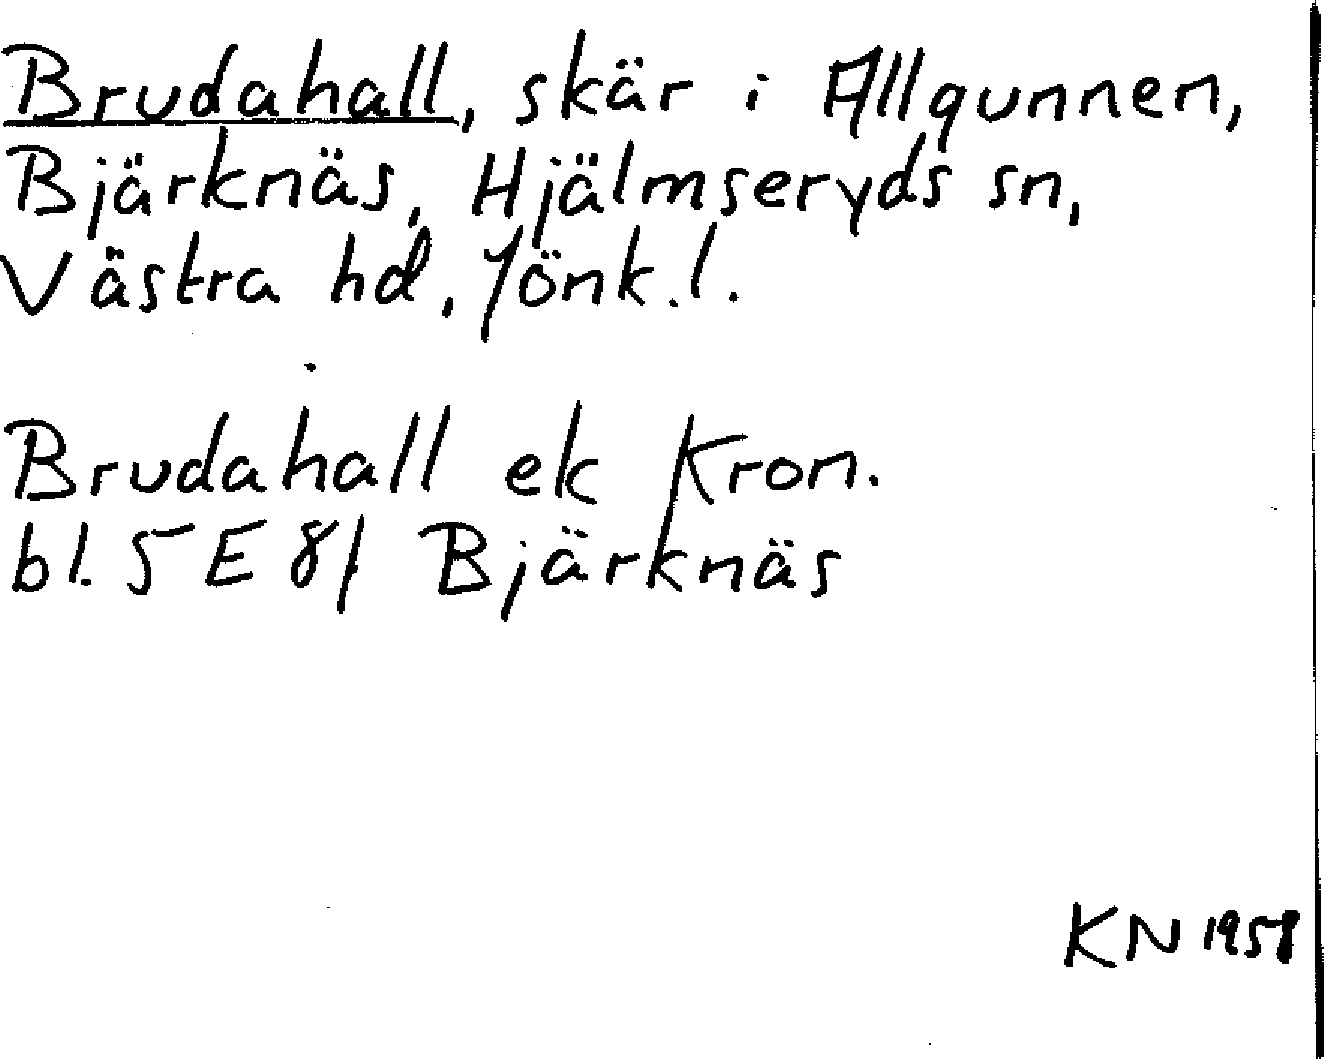 Brudahall, skär i Allgunnen,
Bjärknäs, Hjälmseryds sn,
Västra hd, Jönk.l.
Brudahall ek Kron.
bl. 5 E 8f Bjärknäs
KN 1958